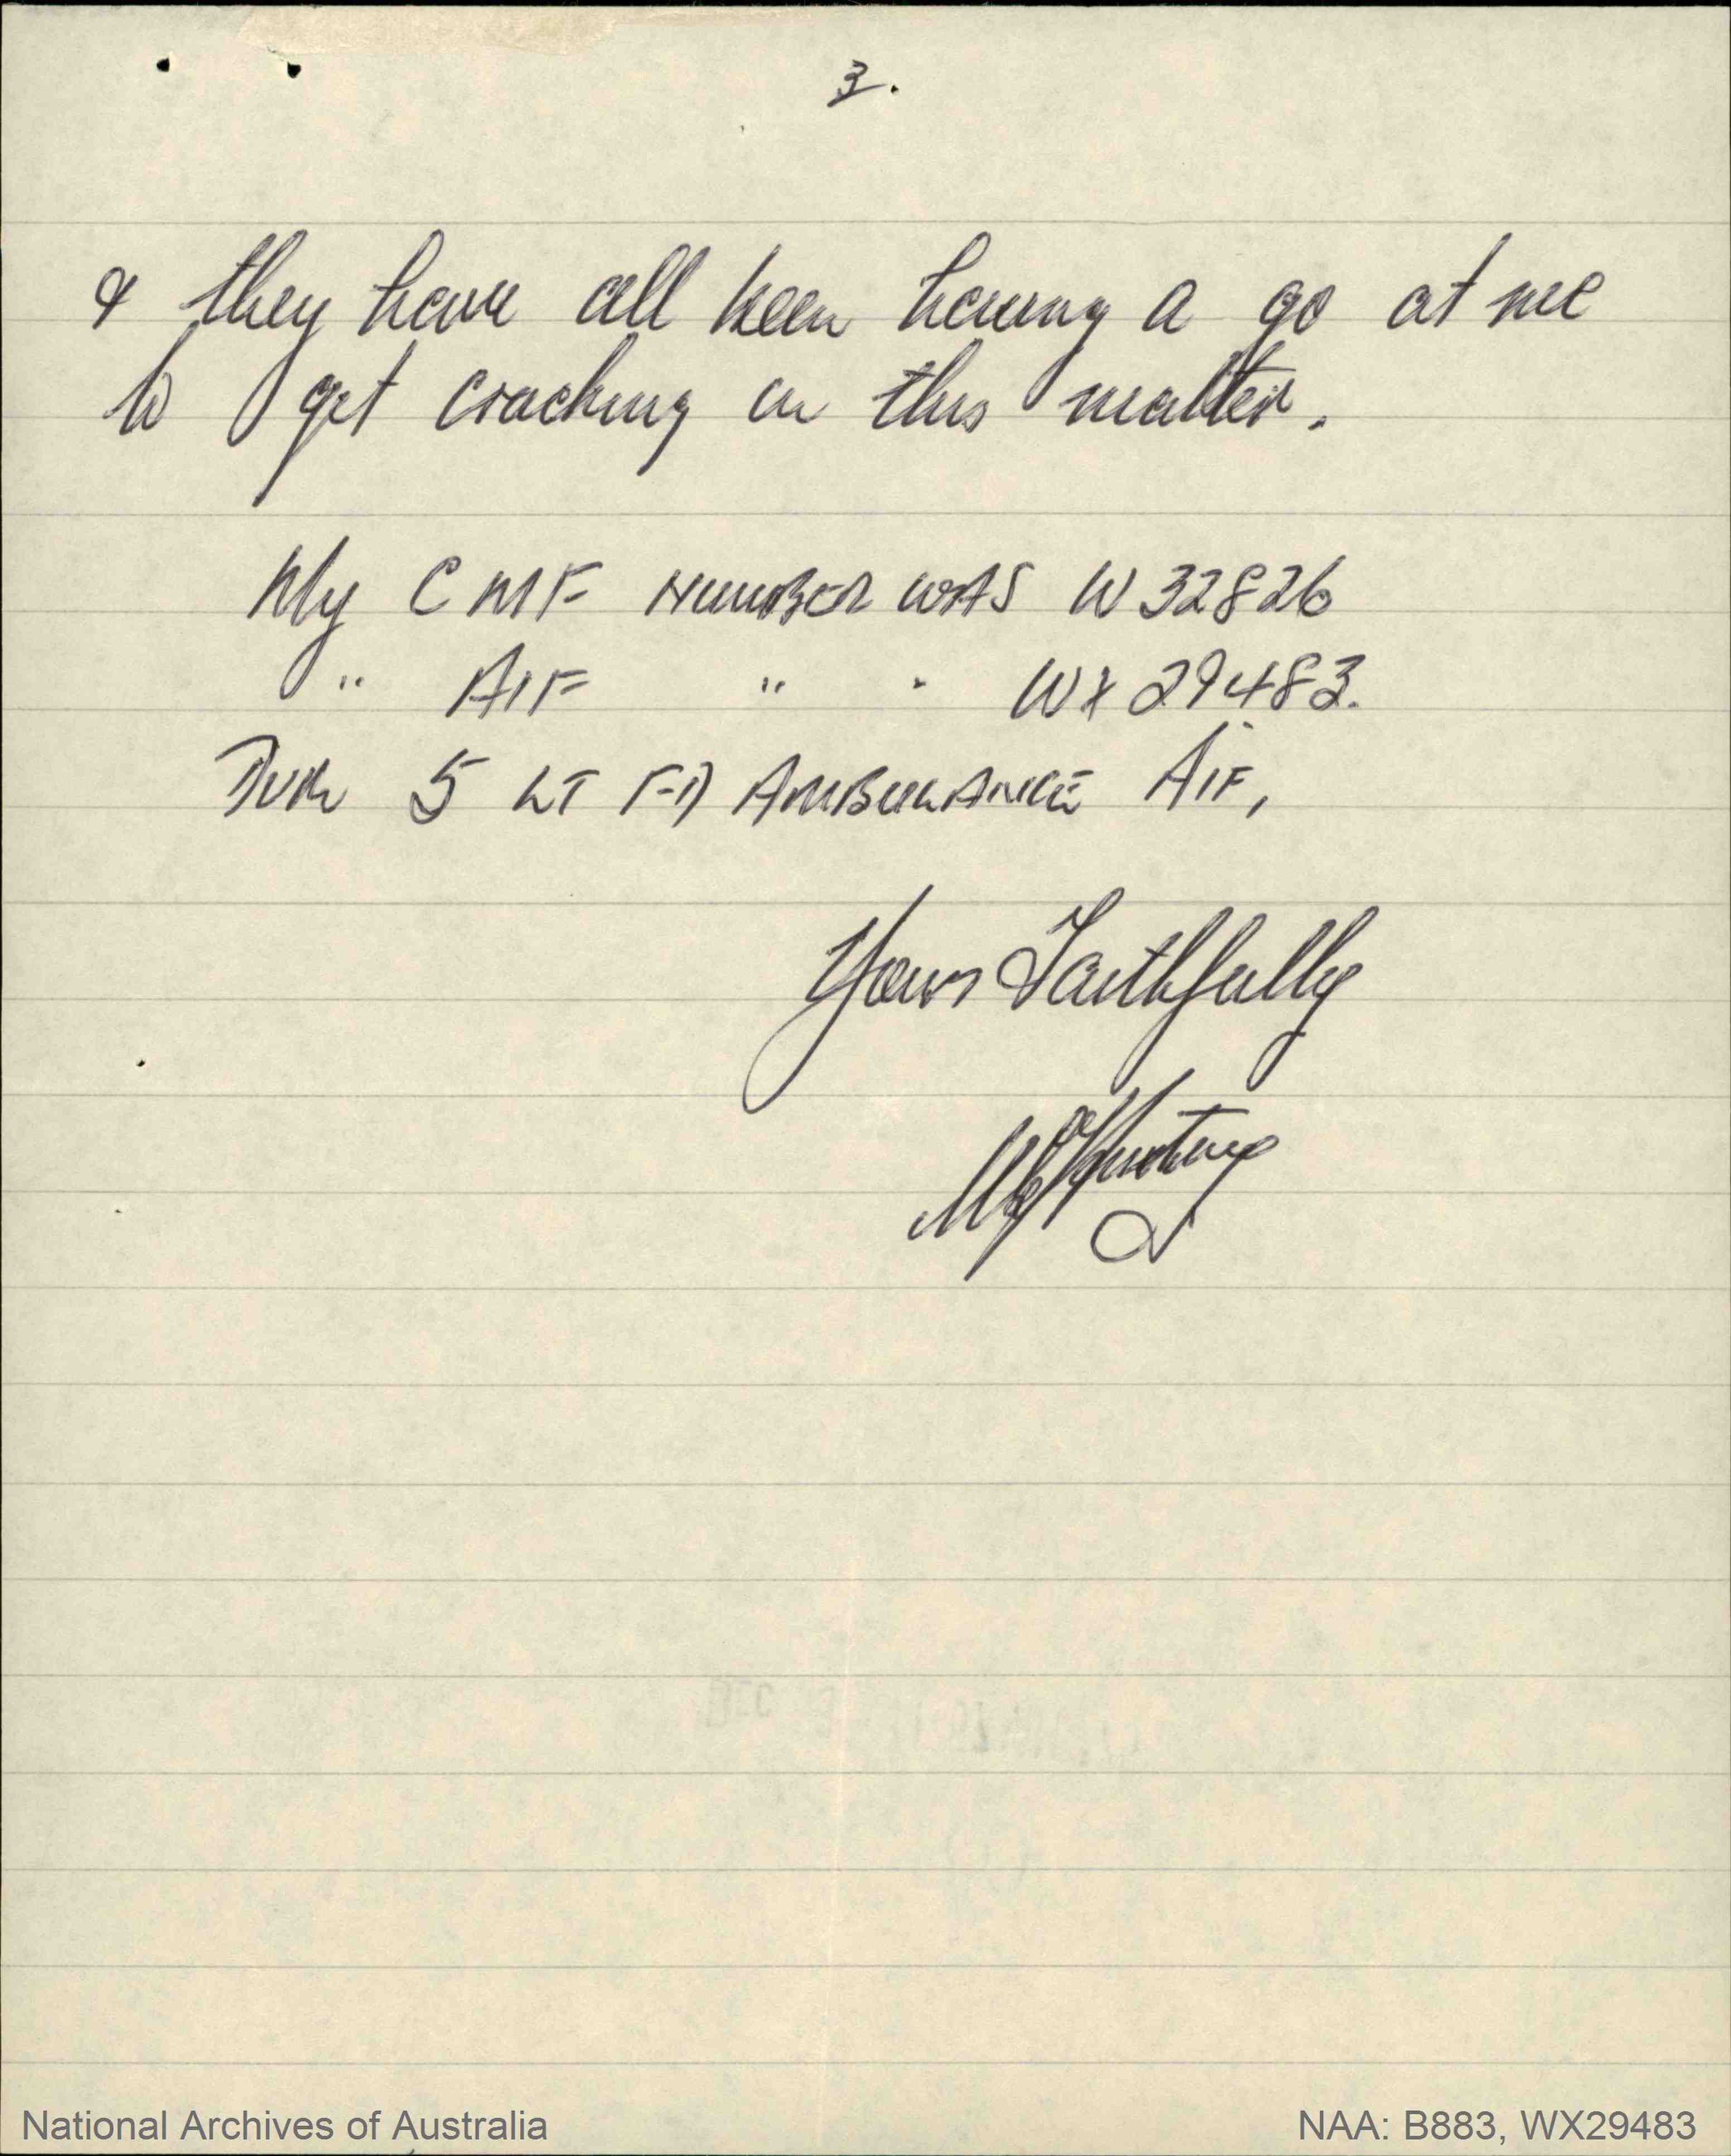 3.
& they have all been having a go at me
to get cracking in this matter.
My CMF NUMBER WAS W 32826
" AIF " " WX 29483.
5 LT FD AMBULANCE AIF,
Yours Faithfully
National Archives of Australia
NAA: B883, WX29483